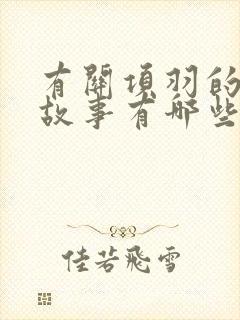 有關項羽的
故事有哪些
佳若飛雪